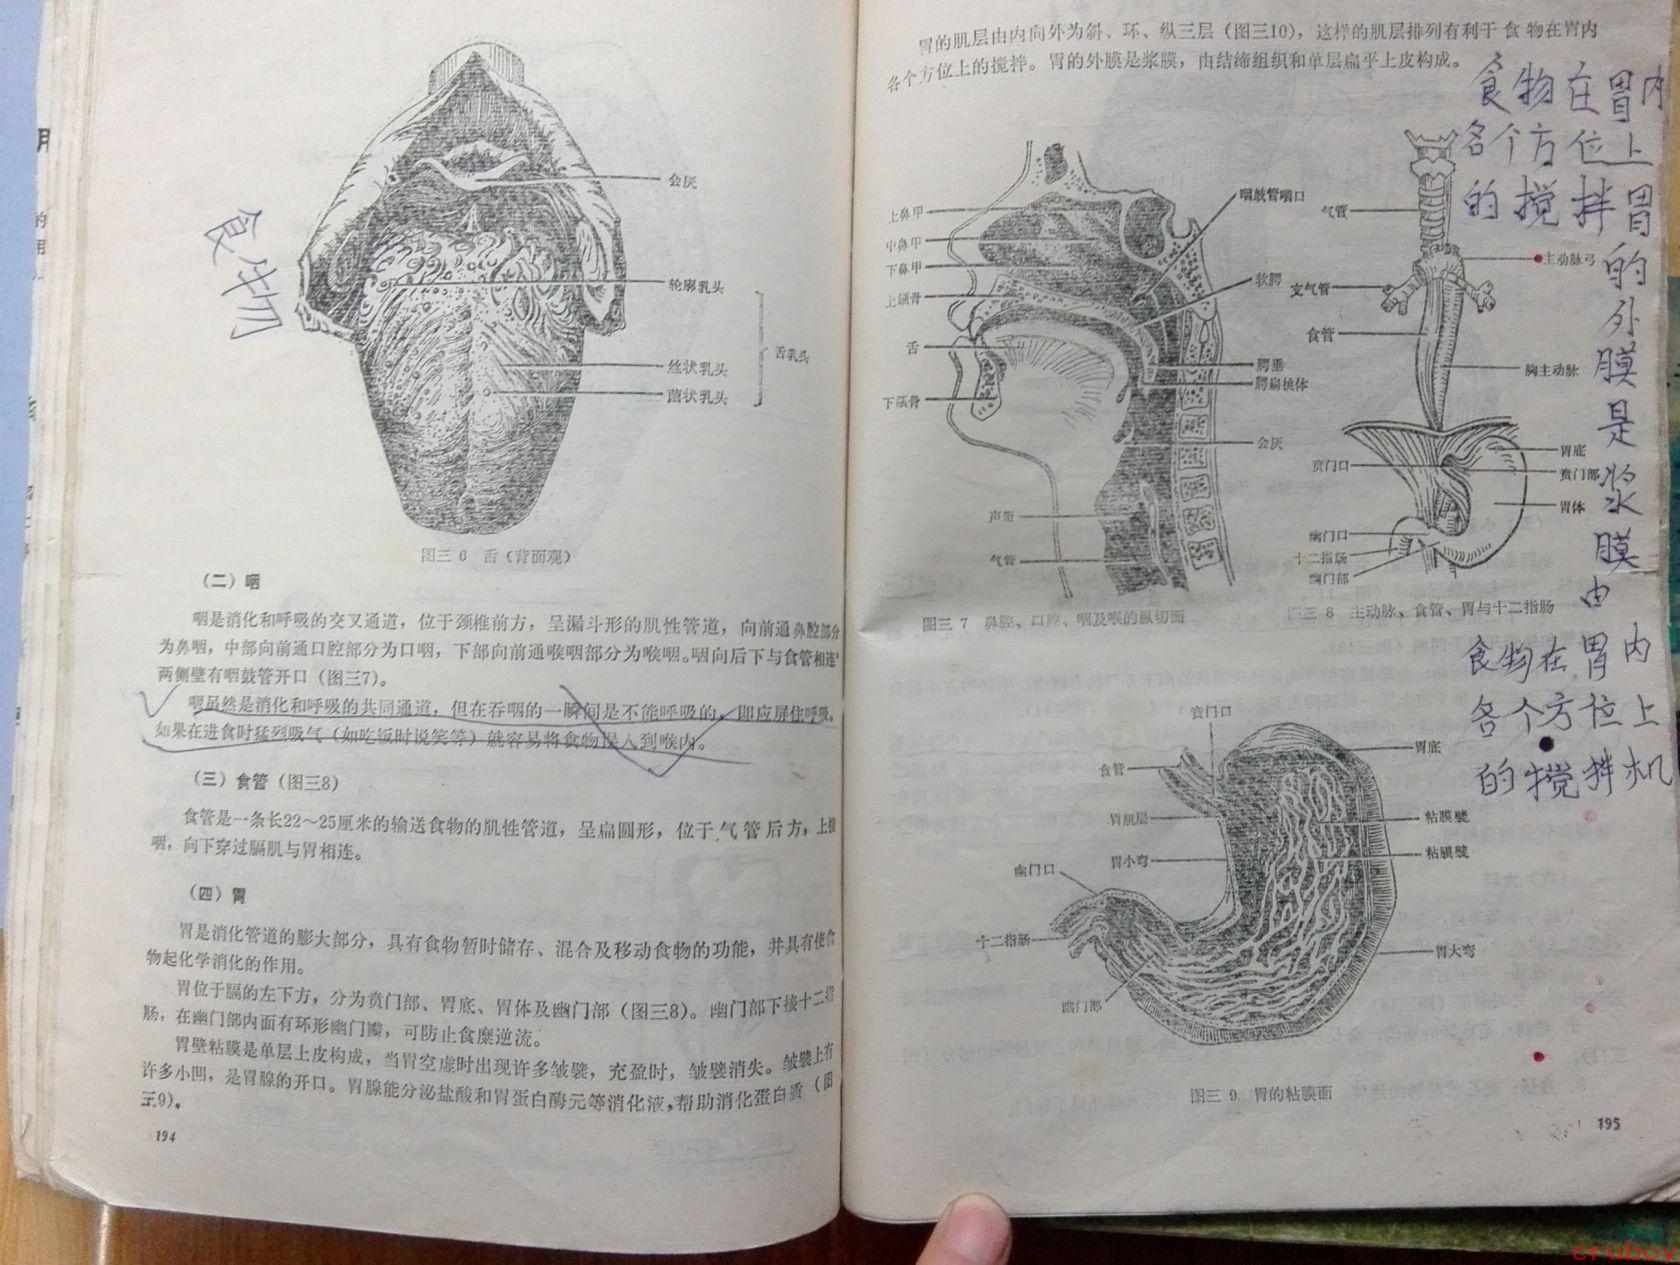 会厌
轮廓乳头
舌乳头
丝状乳头
菌状乳头
食物
图三 6 舌（背面观）
（二）咽
咽是消化和呼吸的交叉通道，位于颈椎前方，呈漏斗形的肌性管道，向前通鼻腔部分
为鼻咽，中部向前通口腔部分为口咽，下部向前通喉咽部分为喉咽。咽向后下与食管相连，
两侧壁有咽鼓管开口（图三7）。
咽虽然是消化和呼吸的共同通道，但在吞咽的一瞬间是不能呼吸的，即应屏住呼吸。
如果在进食时猛烈吸气（如吃饭时说笑等）就容易将食物误入到喉内。
（三）食管（图三8）
食管是一条长22～25厘米的输送食物的肌性管道，呈扁圆形，位于气管后方，上接
咽，向下穿过膈肌与胃相连。
（四）胃
胃是消化管道的膨大部分，具有食物暂时储存、混合及移动食物的功能，并具有使食
物起化学消化的作用。
胃位于膈的左下方，分为贲门部、胃底、胃体及幽门部（图三8）。幽门部下接十二指
肠，在幽门部内面有环形幽门瓣，可防止食糜逆流。
胃壁粘膜是单层上皮构成，当胃空虚时出现许多皱襞，充盈时，皱襞消失。皱襞上有
许多小凹，是胃腺的开口。胃腺能分泌盐酸和胃蛋白酶元等消化液，帮助消化蛋白质（图
三9）。
194
胃的肌层由内向外为斜、环、纵三层（图三10），这样的肌层排列有利于食物在胃内
各个方位上的搅拌。胃的外膜是浆膜，由结缔组织和单层扁平上皮构成。
食物在胃内
各个方位上
的搅拌胃
的
外
膜
是
浆
膜
由
上鼻甲
中鼻甲
下鼻甲
上颌骨
舌
下颌骨
声带
气管
咽鼓管咽口
软腭
腭垂
腭扁桃体
会厌
图三 7 鼻腔、口腔、咽及喉的纵切面
气管
主动脉弓
支气管
食管
胸主动脉
胃底
贲门口
贲门部
胃体
幽门口
十二指肠
幽门部
图三 8 主动脉、食管、胃与十二指肠
食物在胃内
各个方位上
的搅拌机
贲门口
胃底
食管
胃肌层
粘膜襞
胃小弯
粘膜襞
幽门口
十二指肠
胃大弯
幽门部
图三 9 胃的粘膜面
195
crubov